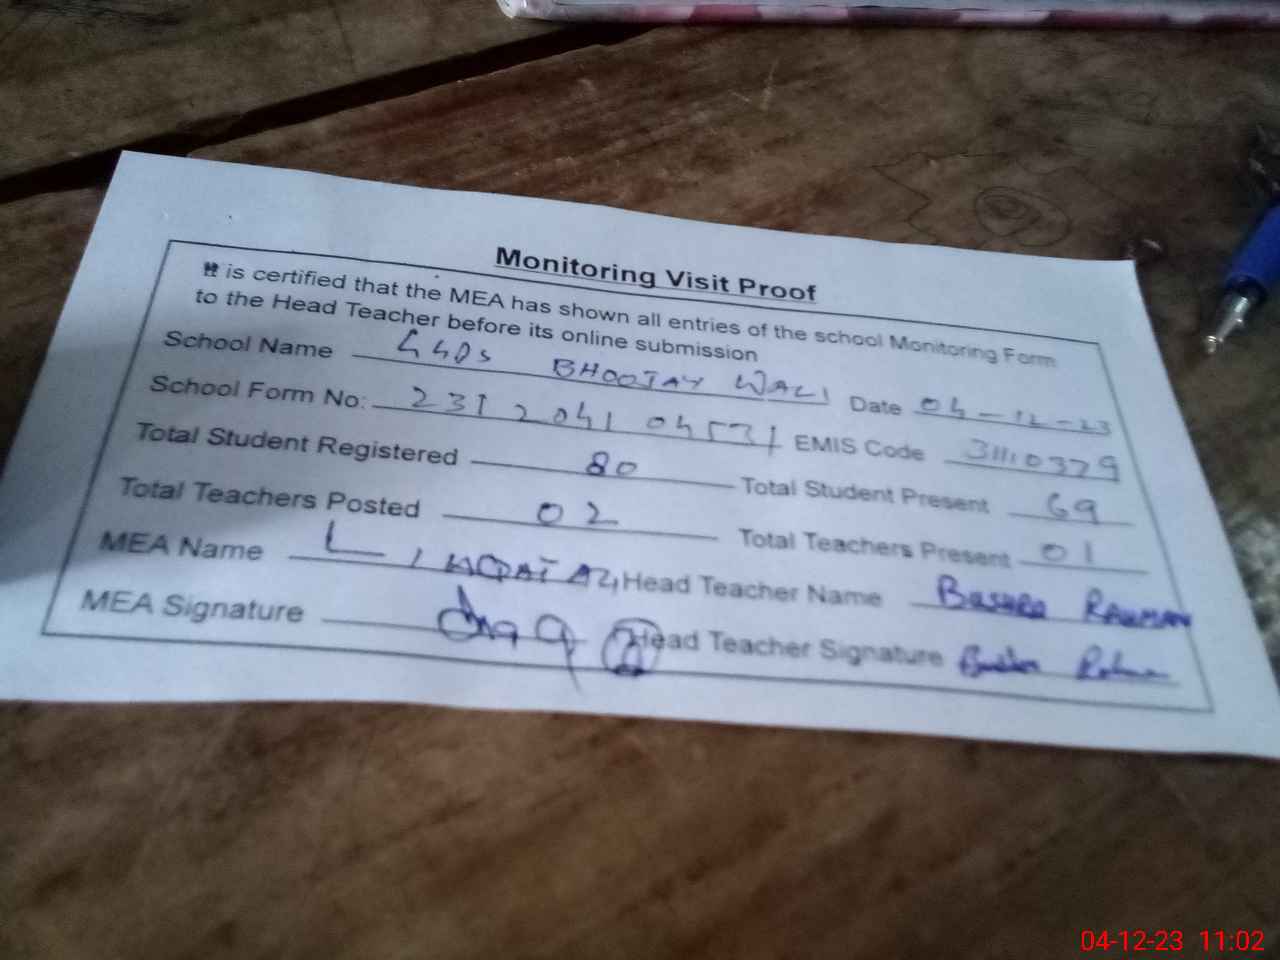 Monitoring Visit Proof
It is certified that the MEA has shown all entries of the school Monitoring Form
to the Head Teacher before its online submission
School Name GGPS BHOOTAY WALI Date 04-12-23
School Form No: EMIS Code 31110379
Total Student Registered 80 Total Student Present 69
Total Teachers Posted 02 Total Teachers Present 01
MEA Name Head Teacher Name BUSHRA RAHMAN
MEA Signature Head Teacher Signature Bushra Rahman
04-12-23 11:02